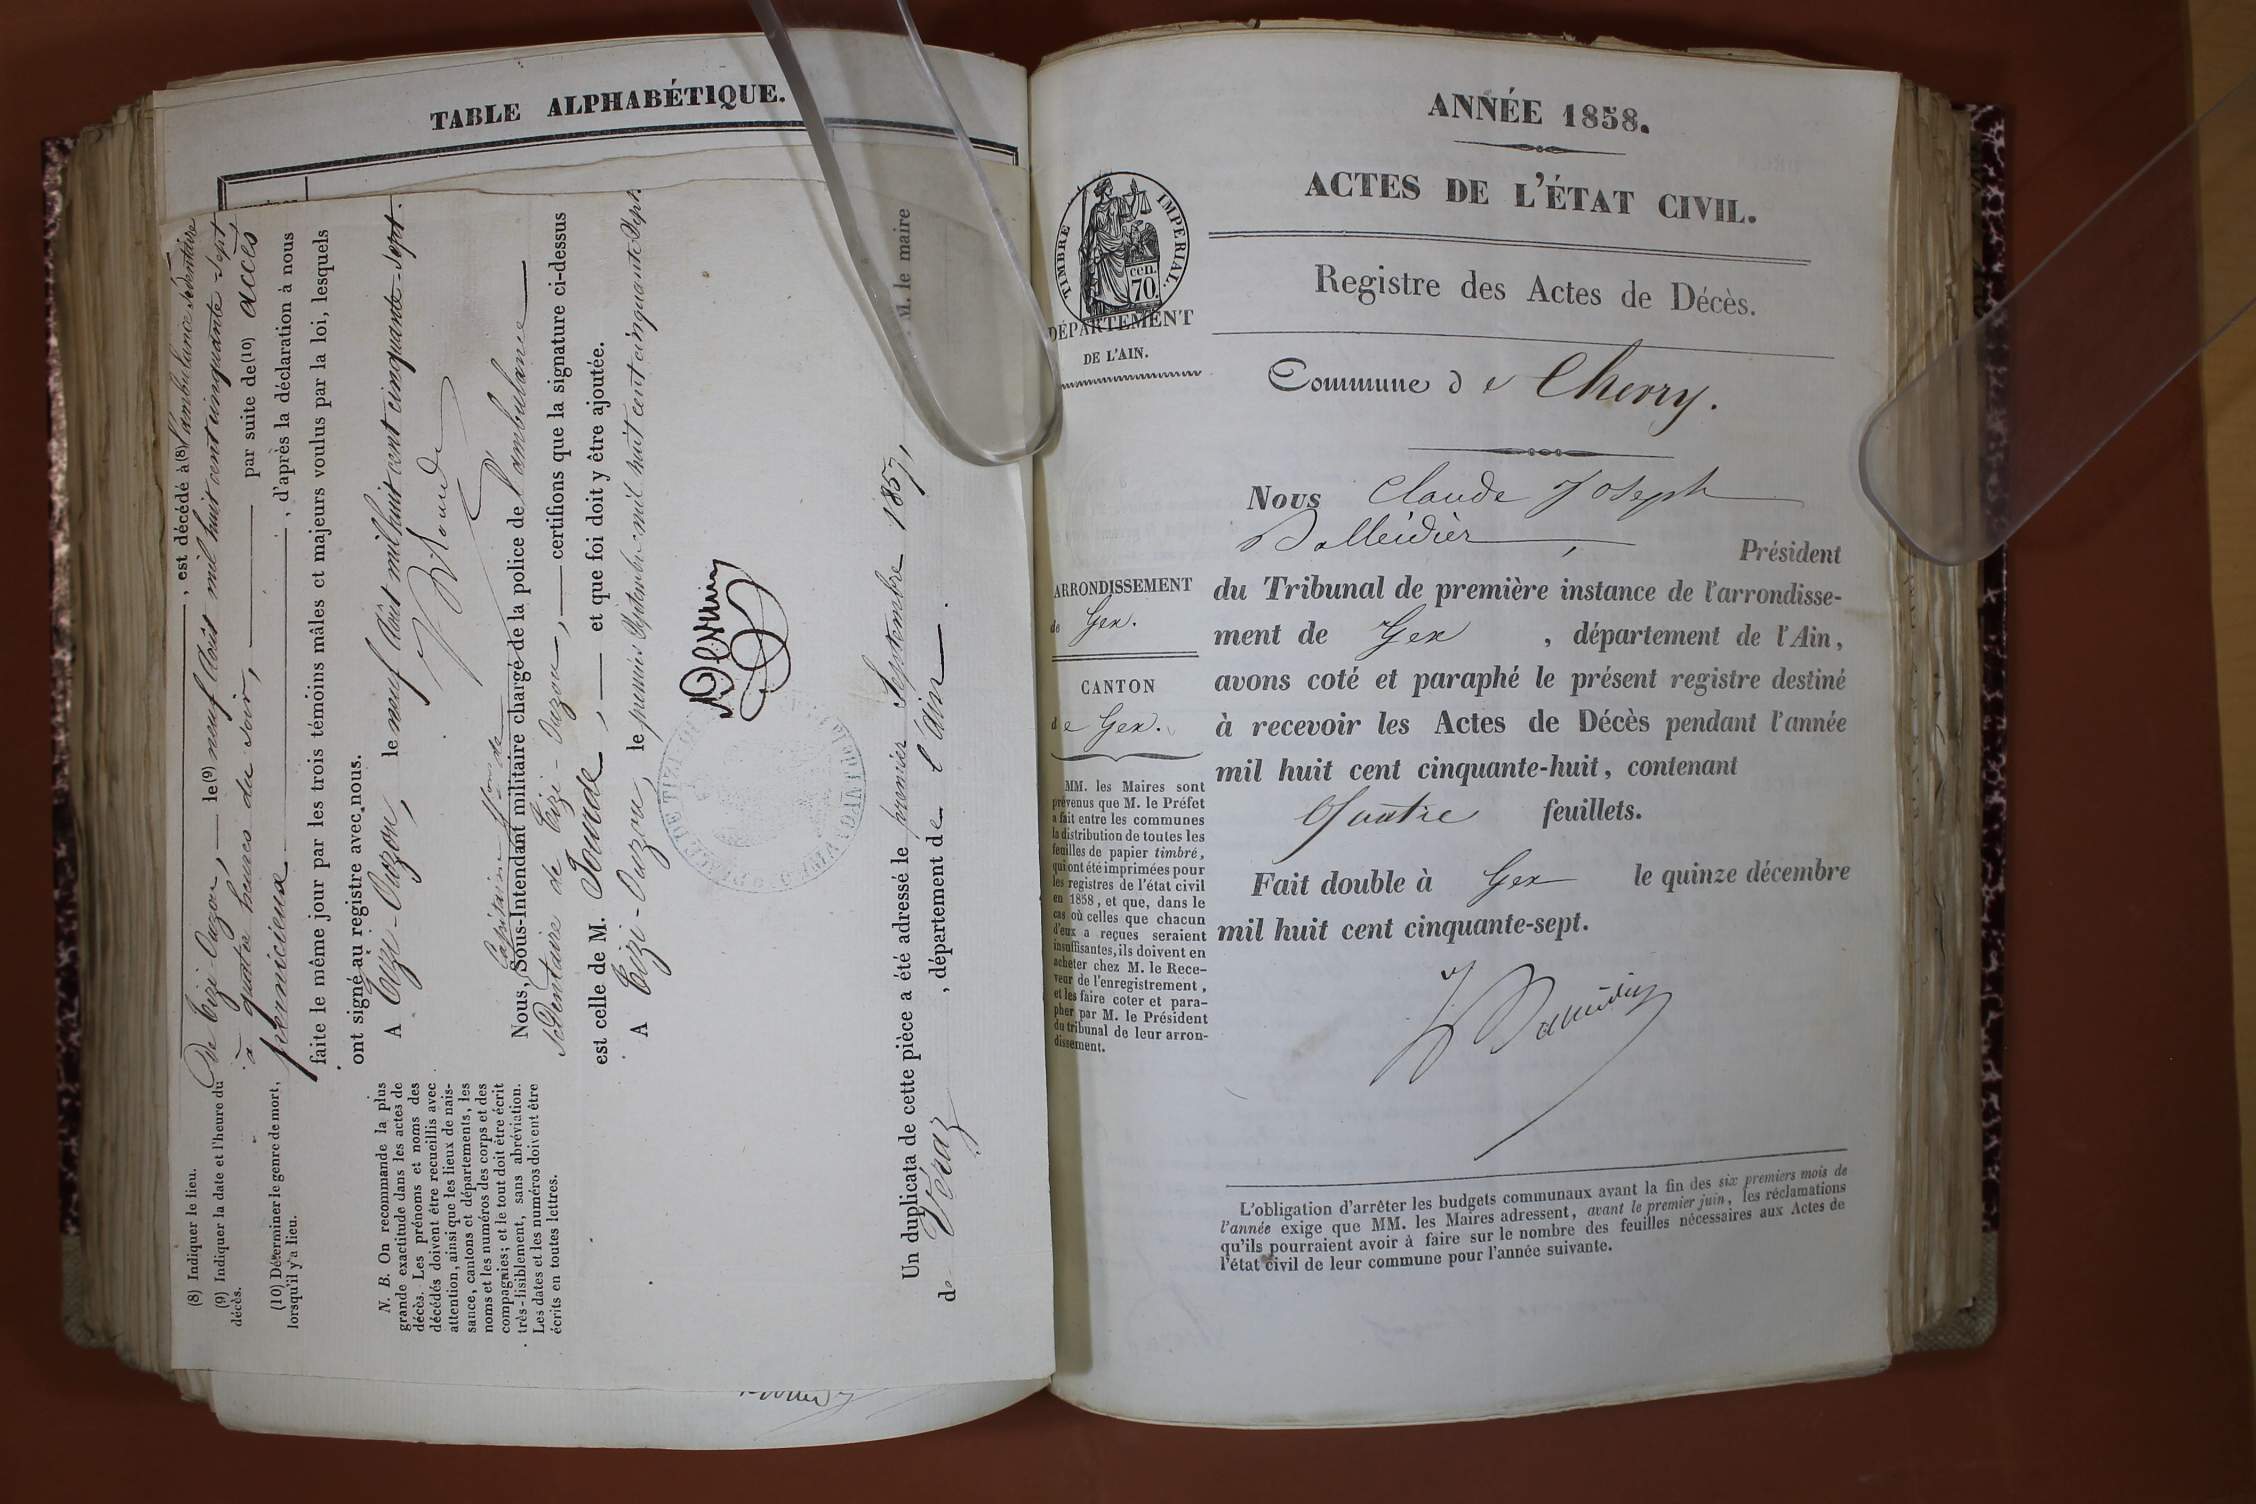 TABLE ALPHABÉTIQUE.
, est décédé à (8) l'ambulance sédentaire
de Tizi-Ouzou, le (9) neuf Août mil huit cent cinquante-sept
à quatre heures du soir, par suite de (10) accès
pernicieux , d'après la déclaration à nous
faite le même jour par les trois témoins mâles et majeurs voulus par la loi, lesquels
ont signé au registre avec nous.
A Tizi-Ouzou, le neuf Août mil huit cent cinquante-sept.
Capitaine ffons de
Nous, Sous-Intendant militaire chargé de la police de l'ambulance
sédentaire de Tizi-Ouzou, certifions que la signature ci-dessus
est celle de M. , et que foi doit y être ajoutée.
A Tizi-Ouzou, le premier Septembre mil huit cent cinquante Sept
Un duplicata de cette pièce a été adressé le premier Septembre 1857, M. le maire
de Véraz , département de l'Ain.
(8) Indiquer le lieu.
(9) Indiquer la date et l'heure du
décès.
(10) Déterminer le genre de mort,
lorsqu'il y a lieu.
N. B. On recommande la plus
grande exactitude dans les actes de
décès. Les prénoms et noms des
décédés doivent être recueillis avec
attention, ainsi que les lieux de nais-
sance, cantons et départements, les
noms et les numéros des corps et des
compagnies; et le tout doit être écrit
très-lisiblement, sans abréviation.
Les dates et les numéros doivent être
écrits en toutes lettres.
ANNÉE 1858.
ACTES DE L'ÉTAT CIVIL.
TIMBRE IMPÉRIAL.
cen.
70.
DÉPARTEMENT
DE L'AIN.
Registre des Actes de Décès.
Commune de Chevry.
Nous Claude Joseph
Balleidier, Président
du Tribunal de première instance de l'arrondisse-
ment de Gex , département de l'Ain,
avons coté et paraphé le présent registre destiné
à recevoir les Actes de Décès pendant l'année
mil huit cent cinquante-huit, contenant
Quatre feuillets.
Fait double à Gex le quinze décembre
mil huit cent cinquante-sept.
ARRONDISSEMENT
de Gex.
CANTON
de Gex.
MM. les Maires sont
prévenus que M. le Préfet
a fait entre les communes
la distribution de toutes les
feuilles de papier timbré,
qui ont été imprimées pour
les registres de l'état civil
en 1858, et que, dans le
cas où celles que chacun
d'eux a reçues seraient
insuffisantes, ils doivent en
acheter chez M. le Rece-
veur de l'enregistrement,
et les faire coter et para-
pher par M. le Président
du tribunal de leur arron-
dissement.
L'obligation d'arrêter les budgets communaux avant la fin des six premiers mois de
l'année exige que MM. les Maires adressent, avant le premier juin, les réclamations
qu'ils pourraient avoir à faire sur le nombre des feuilles nécessaires aux Actes de
l'état civil de leur commune pour l'année suivante.